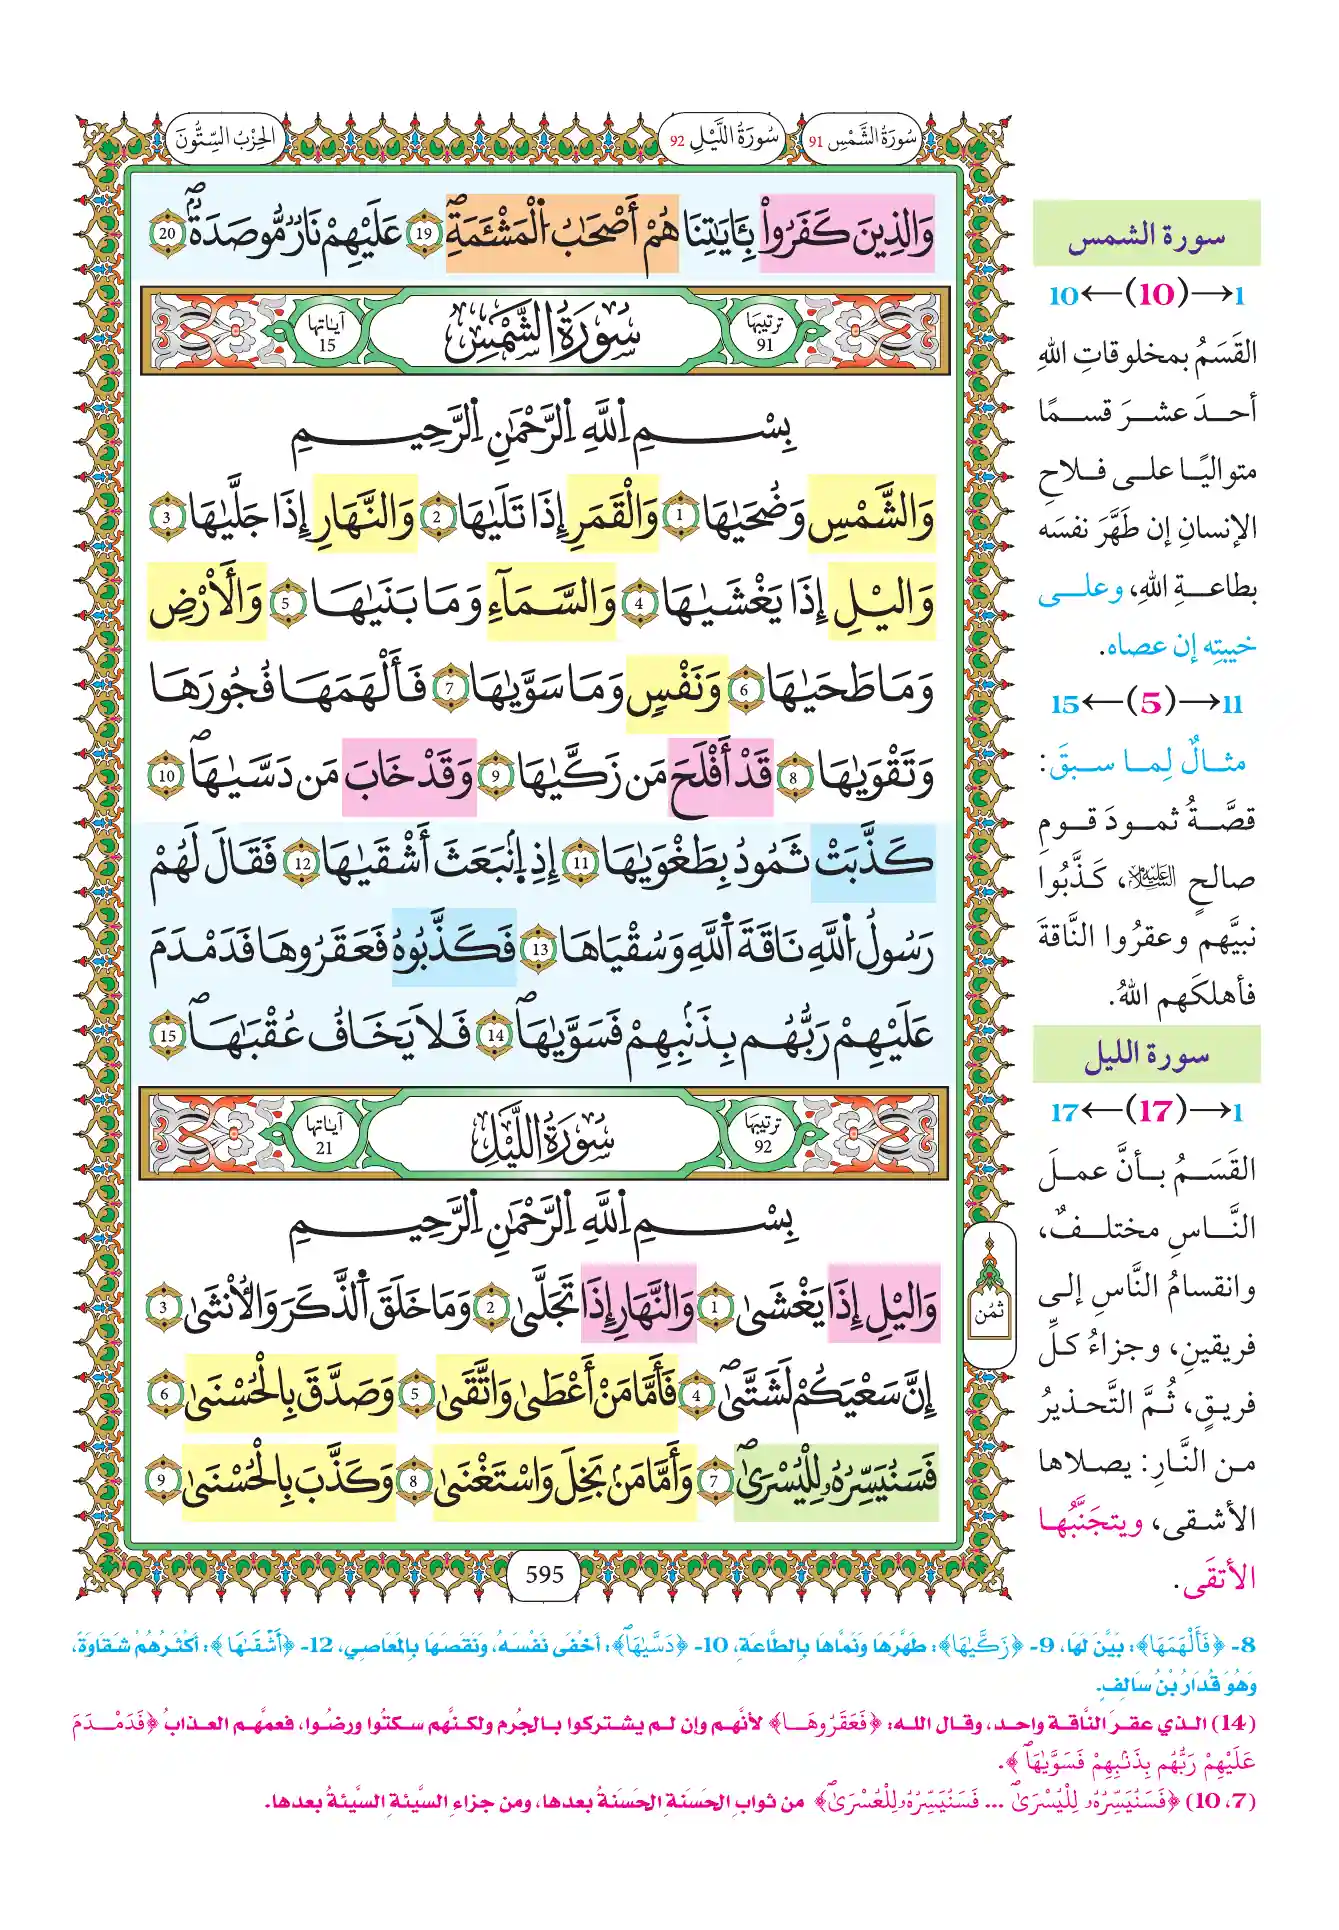 سُورَةُ الشَّمْسِ 91
سُورَةُ اللَّيْلِ 92
الحِزْبُ السِّتُّونَ
وَالذِينَ كَفَرُواْ بِـَٔايَٰتِنَا هُمُۥٓ أَصْحَٰبُ اُلْمَشْـَٔمَةِۖ 19 عَلَيْهِمْ نَارٌ مُّوصَدَةٌۖ 20
ترتيبها 91
سُورَةُ الشَّمْسِ
آياتها 15
بِسْمِ اِللَّهِ اِلرَّحْمَٰنِ اِلرَّحِيمِ
وَالشَّمْسِ وَضُحَيٰهَا 1 وَالْقَمَرِ إِذَا تَلَيٰهَا 2 وَالنَّهَارِ إِذَا جَلَّيٰهَا 3
وَاليْلِ إِذَا يَغْشَيٰهَا 4 وَالسَّمَآءِ وَمَا بَنَيٰهَا 5 وَالَارْضِ
وَمَا طَحَيٰهَا 6 وَنَفْسٍ وَمَا سَوَّيٰهَا 7 فَأَلْهَمَهَا فُجُورَهَا
وَتَقْوَيٰهَا 8 قَدَ اَفْلَحَ مَن زَكَّيٰهَا 9 وَقَدْ خَابَ مَن دَسَّيٰهَاۖ 10
كَذَّبَتْ ثَمُودُ بِطَغْوَيٰهَا 11 إِذِ اِنۢبَعَثَ أَشْقَيٰهَا 12 فَقَالَ لَهُمْ
رَسُولُ اُللَّهِ نَاقَةَ اَللَّهِ وَسُقْيَٰهَا 13 فَكَذَّبُوهُ فَعَقَرُوهَا فَدَمْدَمَ
عَلَيْهِمْ رَبُّهُم بِذَنۢبِهِمْ فَسَوَّيٰهَاۖ 14 فَلَا يَخَافُ عُقْبَٰهَاۖ 15
ترتيبها 92
سُورَةُ اللَّيْلِ
آياتها 21
بِسْمِ اِللَّهِ اِلرَّحْمَٰنِ اِلرَّحِيمِ
وَاليْلِ إِذَا يَغْشَىٰ 1 وَالنَّهَارِ إِذَا تَجَلَّىٰ 2 وَمَا خَلَقَ اَلذَّكَرَ وَالُانثَىٰٓ 3
إِنَّ سَعْيَكُمْ لَشَتَّىٰۖ 4 فَأَمَّا مَنَ اَعْطَىٰ وَاتَّقَىٰ 5 وَصَدَّقَ بِالْحُسْنَىٰ 6
فَسَنُيَسِّرُهُۥ لِلْيُسْرَىٰۖ 7 وَأَمَّا مَنۢ بَخِلَ وَاسْتَغْنَىٰ 8 وَكَذَّبَ بِالْحُسْنَىٰ 9
ثُمُن
595
سورة الشمس
1→(10)←10
القَسَمُ بمخلوقاتِ اللهِ
أحدَ عشرَ قسمًا
متواليًا على فلاحِ
الإنسانِ إن طَهَّرَ نفسَه
بطاعةِ اللهِ، وعلى
خيبتِه إن عصاه.
11→(5)←15
مثالٌ لِما سبقَ:
قصَّةُ ثمودَ قومِ
صالحٍ عَلَيْهِ السَّلَام، كَذَّبُوا
نبيَّهم وعقرُوا النَّاقةَ
فأهلكَهم اللهُ.
سورة الليل
1→(17)←17
القَسَمُ بأنَّ عملَ
النَّاسِ مختلفٌ،
وانقسامُ النَّاسِ إلى
فريقينِ، وجزاءُ كلِّ
فريقٍ، ثُمَّ التَّحذيرُ
من النَّارِ: يصلاها
الأشقى، ويتجنَّبُها
الأتقَى.
8- ﴿فَأَلْهَمَهَا﴾: بَيَّنَ لَهَا، 9- ﴿زَكَّيٰهَا﴾: طَهَّرَهَا وَنَمَّاهَا بِالطَّاعَةِ، 10- ﴿دَسَّيٰهَاۖ﴾: أَخْفَى نَفْسَهُ، وَنَقَصَهَا بِالمَعَاصِي، 12- ﴿أَشْقَيٰهَا﴾: أَكْثَرُهُمْ شَقَاوَةً،
وَهُوَ قُدَارُ بْنُ سَالِفٍ.
(14) الذي عقرَ النَّاقةَ واحد، وقال الله: ﴿فَعَقَرُوهَا﴾ لأنَّهم وإن لم يشتركوا بالجُرم ولكنَّهم سكتُوا ورضُوا، فعمَّهم العذابُ ﴿فَدَمْدَمَ
عَلَيْهِمْ رَبُّهُم بِذَنۢبِهِمْ فَسَوَّيٰهَاۖ﴾.
(7، 10) ﴿فَسَنُيَسِّرُهُۥ لِلْيُسْرَىٰۖ ... فَسَنُيَسِّرُهُۥ لِلْعُسْرَىٰۖ﴾ من ثوابِ الحَسَنَةِ الحَسَنَةُ بعدها، ومن جزاءِ السيَّئةِ السيَّئةُ بعدها.